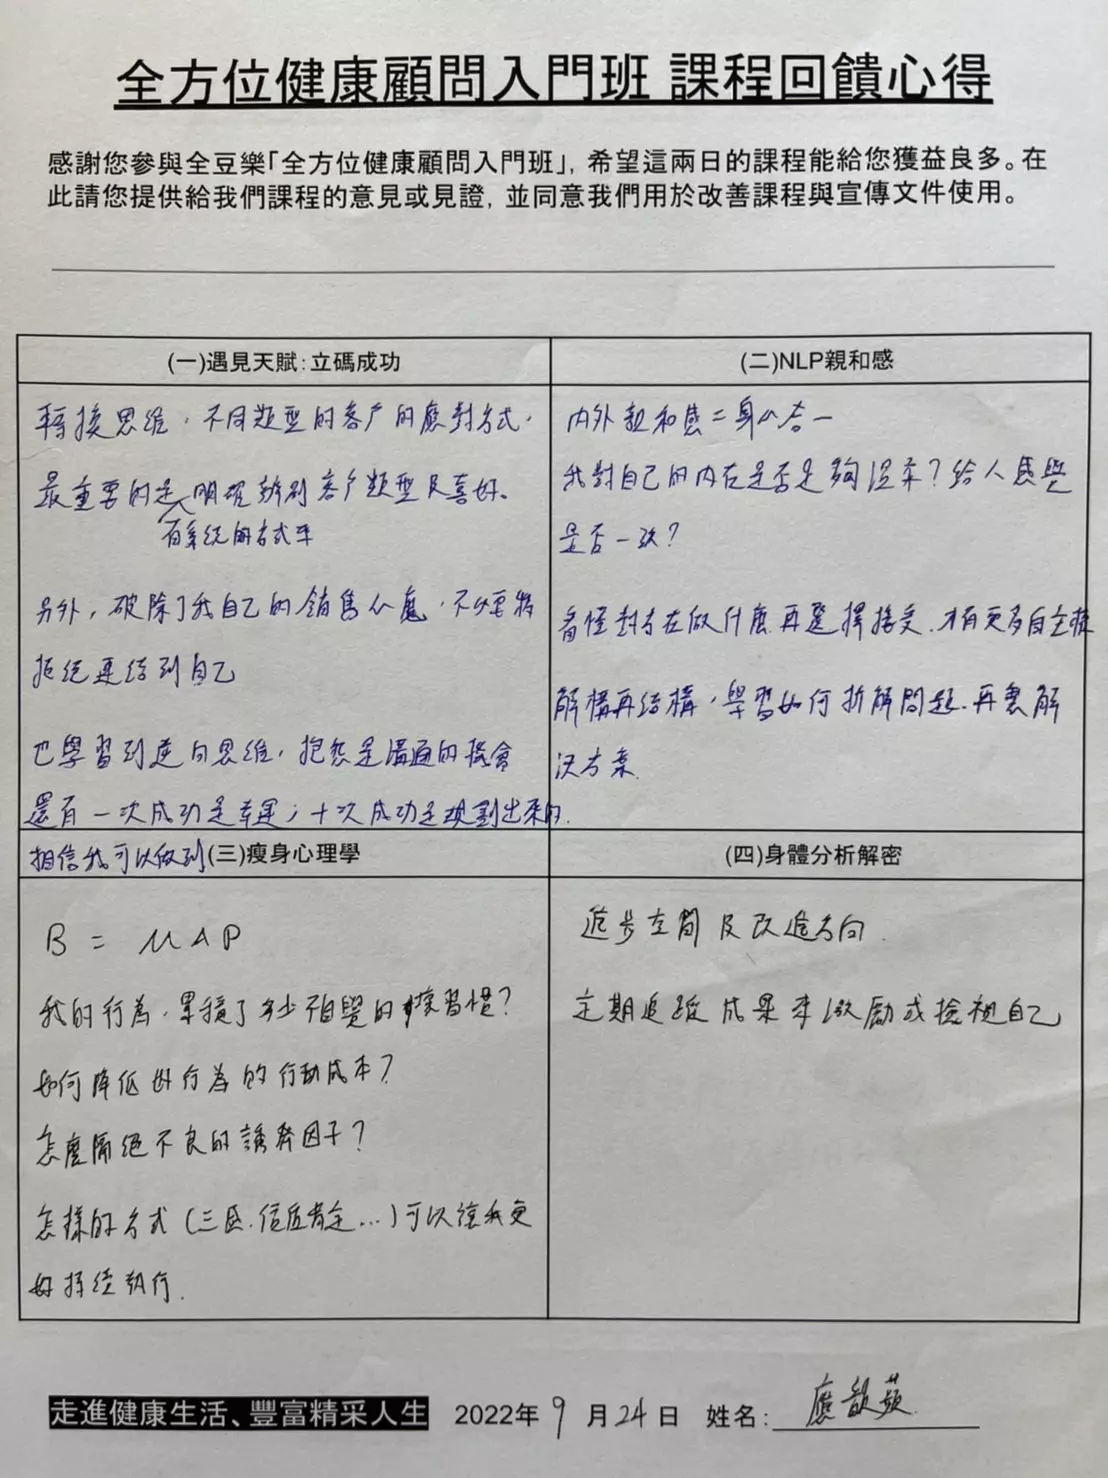 全方位健康顧問入門班 課程回饋心得
感謝您參與全豆樂「全方位健康顧問入門班」，希望這兩日的課程能給您獲益良多。在
此請您提供給我們課程的意見或見證，並同意我們用於改善課程與宣傳文件使用。
(一)遇見天賦：立碼成功
轉換思維，不同類型的客戶的應對方式，
最重要的是明確辨別客戶類型及喜好。
有系統的方式來
另外，破除了我自己的銷售心魔，不必要將
拒絕連結到自己
也學習到逆向思維，抱怨是溝通的機會
還有一次成功是幸運；十次成功是規劃出來的.
相信我可以做到
(二)NLP親和感
內外親和感=身心合一
我對自己的內在是否足夠溫柔？給人感覺
是否一致？
看懂對方在做什麼再選擇接受，才有更多自主權
解構再結構，學習如何拆解問題，再塞解
決方案.
(三)瘦身心理學
B = MAP
我的行為，累積了多少不自覺的壞習慣？
如何降低好行為的行動成本？
怎麼隔絕不良的誘發因子？
怎樣的方式(三區，信任肯定...)可以讓我更
好持續執行.
(四)身體分析解密
進步空間及改進方向.
定期追蹤成果來激勵或檢視自己
走進健康生活、豐富精采人生 2022年 9 月 24 日 姓名：